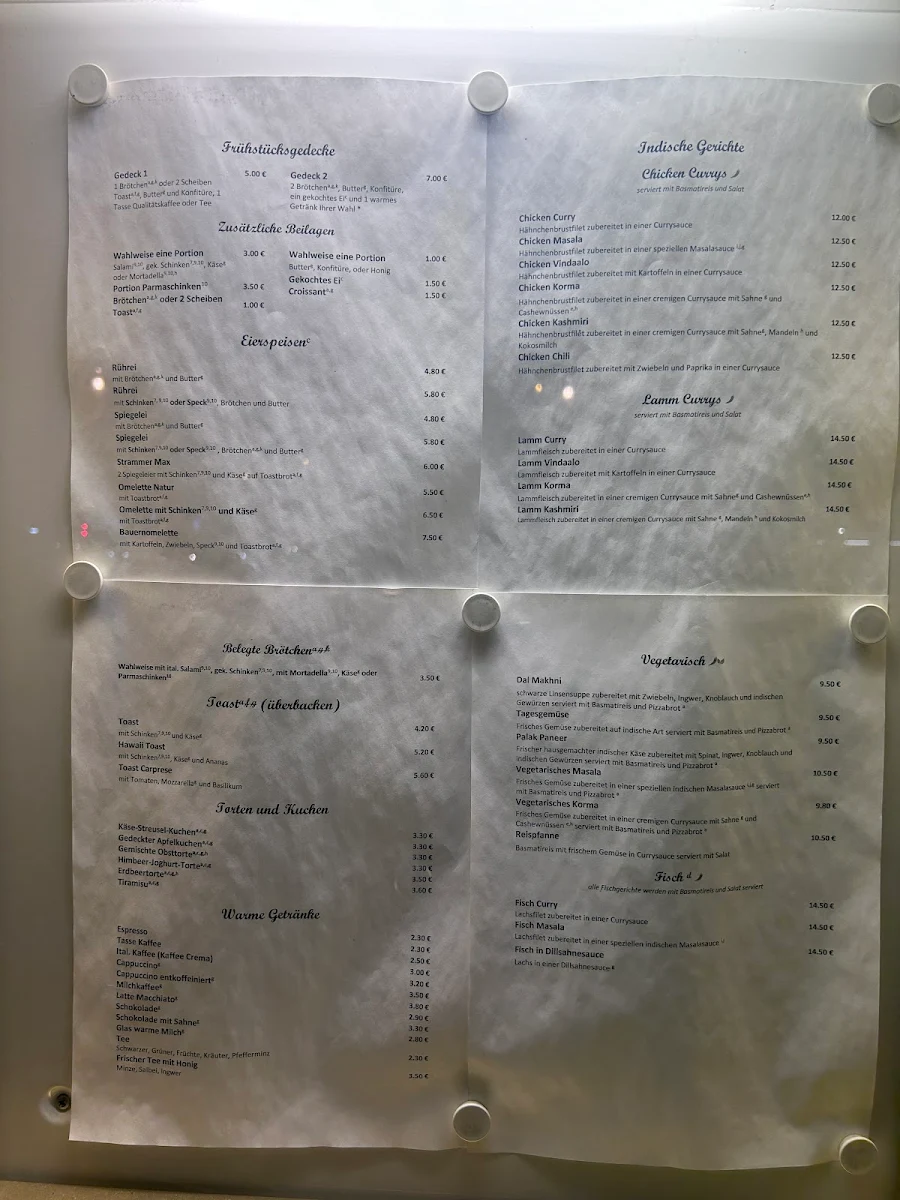 Frühstücksgedecke
Gedeck 1 5.00 €
1 Brötchenᵃ,ᵍ,ᵏ oder 2 Scheiben
Toastᵃ,ᶠ,ᵍ, Butterᵍ und Konfitüre, 1
Tasse Qualitätskaffee oder Tee
Gedeck 2 7.00 €
2 Brötchenᵃ,ᵍ,ᵏ, Butterᵍ, Konfitüre,
ein gekochtes Eiᶜ und 1 warmes
Getränk Ihrer Wahl
Zusätzliche Beilagen
Wahlweise eine Portion 3.00 €
Salami⁹,¹⁰, gek. Schinken⁷,⁹,¹⁰, Käseᵍ
oder Mortadella
Portion Parmaschinken¹⁰ 3.50 €
Brötchenᵃ,ᵍ,ᵏ oder 2 Scheiben
Toastᵃ,ᶠ,ᵍ 1.00 €
Wahlweise eine Portion 1.00 €
Butterᵍ, Konfitüre, oder Honig
Gekochtes Eiᶜ 1.50 €
Croissantᵃ,ᵍ 1.50 €
Eierspeisenᶜ
Rührei 4.80 €
mit Brötchenᵃ,ᵍ,ᵏ und Butterᵍ
Rührei 5.80 €
mit Schinken⁷,⁹,¹⁰ oder Speck⁹,¹⁰, Brötchen und Butter
Spiegelei 4.80 €
mit Brötchenᵃ,ᵍ,ᵏ und Butterᵍ
Spiegelei 5.80 €
mit Schinken⁷,⁹,¹⁰ oder Speck⁹,¹⁰ , Brötchenᵃ,ᵍ,ᵏ und Butterᵍ
Strammer Max 6.00 €
2 Spiegeleier mit Schinken⁷,⁹,¹⁰ und Käseᵍ auf Toastbrotᵃ,ᶠ,ᵍ
Omelette Natur 5.50 €
mit Toastbrotᵃ,ᶠ,ᵍ
Omelette mit Schinken⁷,⁹,¹⁰ und Käseᵍ 6.50 €
mit Toastbrotᵃ,ᶠ,ᵍ
Bauernomelette 7.50 €
mit Kartoffeln, Zwiebeln, Speck⁹,¹⁰ und Toastbrotᵃ,ᶠ,ᵍ
Indische Gerichte
Chicken Currys
serviert mit Basmatireis und Salat
Chicken Curry 12.00 €
Hähnchenbrustfilet zubereitet in einer Currysauce
Chicken Masala 12.50 €
Hähnchenbrustfilet zubereitet in einer speziellen Masalasauce
Chicken Vindaalo 12.50 €
Hähnchenbrustfilet zubereitet mit Kartoffeln in einer Currysauce
Chicken Korma 12.50 €
Hähnchenbrustfilet zubereitet in einer cremigen Currysauce mit Sahne ᵍ und
Cashewnüssen ᵉ,ʰ
Chicken Kashmiri 12.50 €
Hähnchenbrustfilet zubereitet in einer cremigen Currysauce mit Sahneᵍ, Mandeln ʰ und
Kokosmilch
Chicken Chili 12.50 €
Hähnchenbrustfilet zubereitet mit Zwiebeln und Paprika in einer Currysauce
Lamm Currys
serviert mit Basmatireis und Salat
Lamm Curry 14.50 €
Lammfleisch zubereitet in einer Currysauce
Lamm Vindaalo 14.50 €
Lammfleisch zubereitet mit Kartoffeln in einer Currysauce
Lamm Korma 14.50 €
Lammfleisch zubereitet in einer cremigen Currysauce mit Sahneᵍ und Cashewnüssenᵉ,ʰ
Lamm Kashmiri 14.50 €
Lammfleisch zubereitet in einer cremigen Currysauce mit Sahne ᵍ, Mandeln ʰ und Kokosmilch
Belegte Brötchenᵃ,ᵍ,ᵏ
Wahlweise mit ital. Salami⁹,¹⁰, gek. Schinken⁷,⁹,¹⁰, mit Mortadella⁹,¹⁰, Käseᵍ oder
Parmaschinken¹⁰ 3.50 €
Toastᵃ,ᶠ,ᵍ (überbacken)
Toast 4.20 €
mit Schinken⁷,⁹,¹⁰ und Käseᵍ
Hawaii Toast 5.20 €
mit Schinken⁷,⁹,¹⁰, Käseᵍ und Ananas
Toast Carprese 5.60 €
mit Tomaten, Mozzarellaᵍ und Basilikum
Torten und Kuchen
Käse-Streusel-Kuchenᵃ,ᶜ,ᵍ 3.30 €
Gedeckter Apfelkuchenᵃ,ᶜ,ᵍ 3.30 €
Gemischte Obsttorteᵃ,ᶜ,ᵍ,ʰ 3.30 €
Himbeer-Joghurt-Torteᵃ,ᶜ,ᵍ 3.30 €
Erdbeertorteᵃ,ᶜ,ᵍ,ʰ 3.50 €
Tiramisuᵃ,ᶜ,ᵍ 3.60 €
Warme Getränke
Espresso 2.30 €
Tasse Kaffee 2.30 €
Ital. Kaffee (Kaffee Crema) 2.50 €
Cappuccinoᵍ 3.00 €
Cappuccino entkoffeiniertᵍ 3.20 €
Milchkaffeeᵍ 3.50 €
Latte Macchiatoᵍ 3.80 €
Schokoladeᵍ 2.90 €
Schokolade mit Sahneᵍ 3.30 €
Glas warme Milchᵍ 2.80 €
Tee
Schwarzer, Grüner, Früchte, Kräuter, Pfefferminz 2.30 €
Frischer Tee mit Honig
Minze, Salbei, Ingwer 3.50 €
Vegetarisch
Dal Makhni 9.50 €
schwarze Linsensuppe zubereitet mit Zwiebeln, Ingwer, Knoblauch und indischen
Gewürzen serviert mit Basmatireis und Pizzabrot ᵃ
Tagesgemüse 9.50 €
Frisches Gemüse zubereitet auf indische Art serviert mit Basmatireis und Pizzabrot ᵃ
Palak Paneer 9.50 €
Frischer hausgemachter indischer Käse zubereitet mit Spinat, Ingwer, Knoblauch und
indischen Gewürzen serviert mit Basmatireis und Pizzabrot ᵃ
Vegetarisches Masala 10.50 €
Frisches Gemüse zubereitet in einer speziellen indischen Masalasauce serviert
mit Basmatireis und Pizzabrot ᵃ
Vegetarisches Korma 9.80 €
Frisches Gemüse zubereitet in einer cremigen Currysauce mit Sahne ᵍ und
Cashewnüssen ᵉ,ʰ serviert mit Basmatireis und Pizzabrot ᵃ
Reispfanne 10.50 €
Basmatireis mit frischem Gemüse in Currysauce serviert mit Salat
Fisch ᵈ
alle Fischgerichte werden mit Basmatireis und Salat serviert
Fisch Curry 14.50 €
Lachsfilet zubereitet in einer Currysauce
Fisch Masala 14.50 €
Lachsfilet zubereitet in einer speziellen indischen Masalasauce
Fisch in Dillsahnesauce 14.50 €
Lachs in einer Dillsahnesauce ᵍ